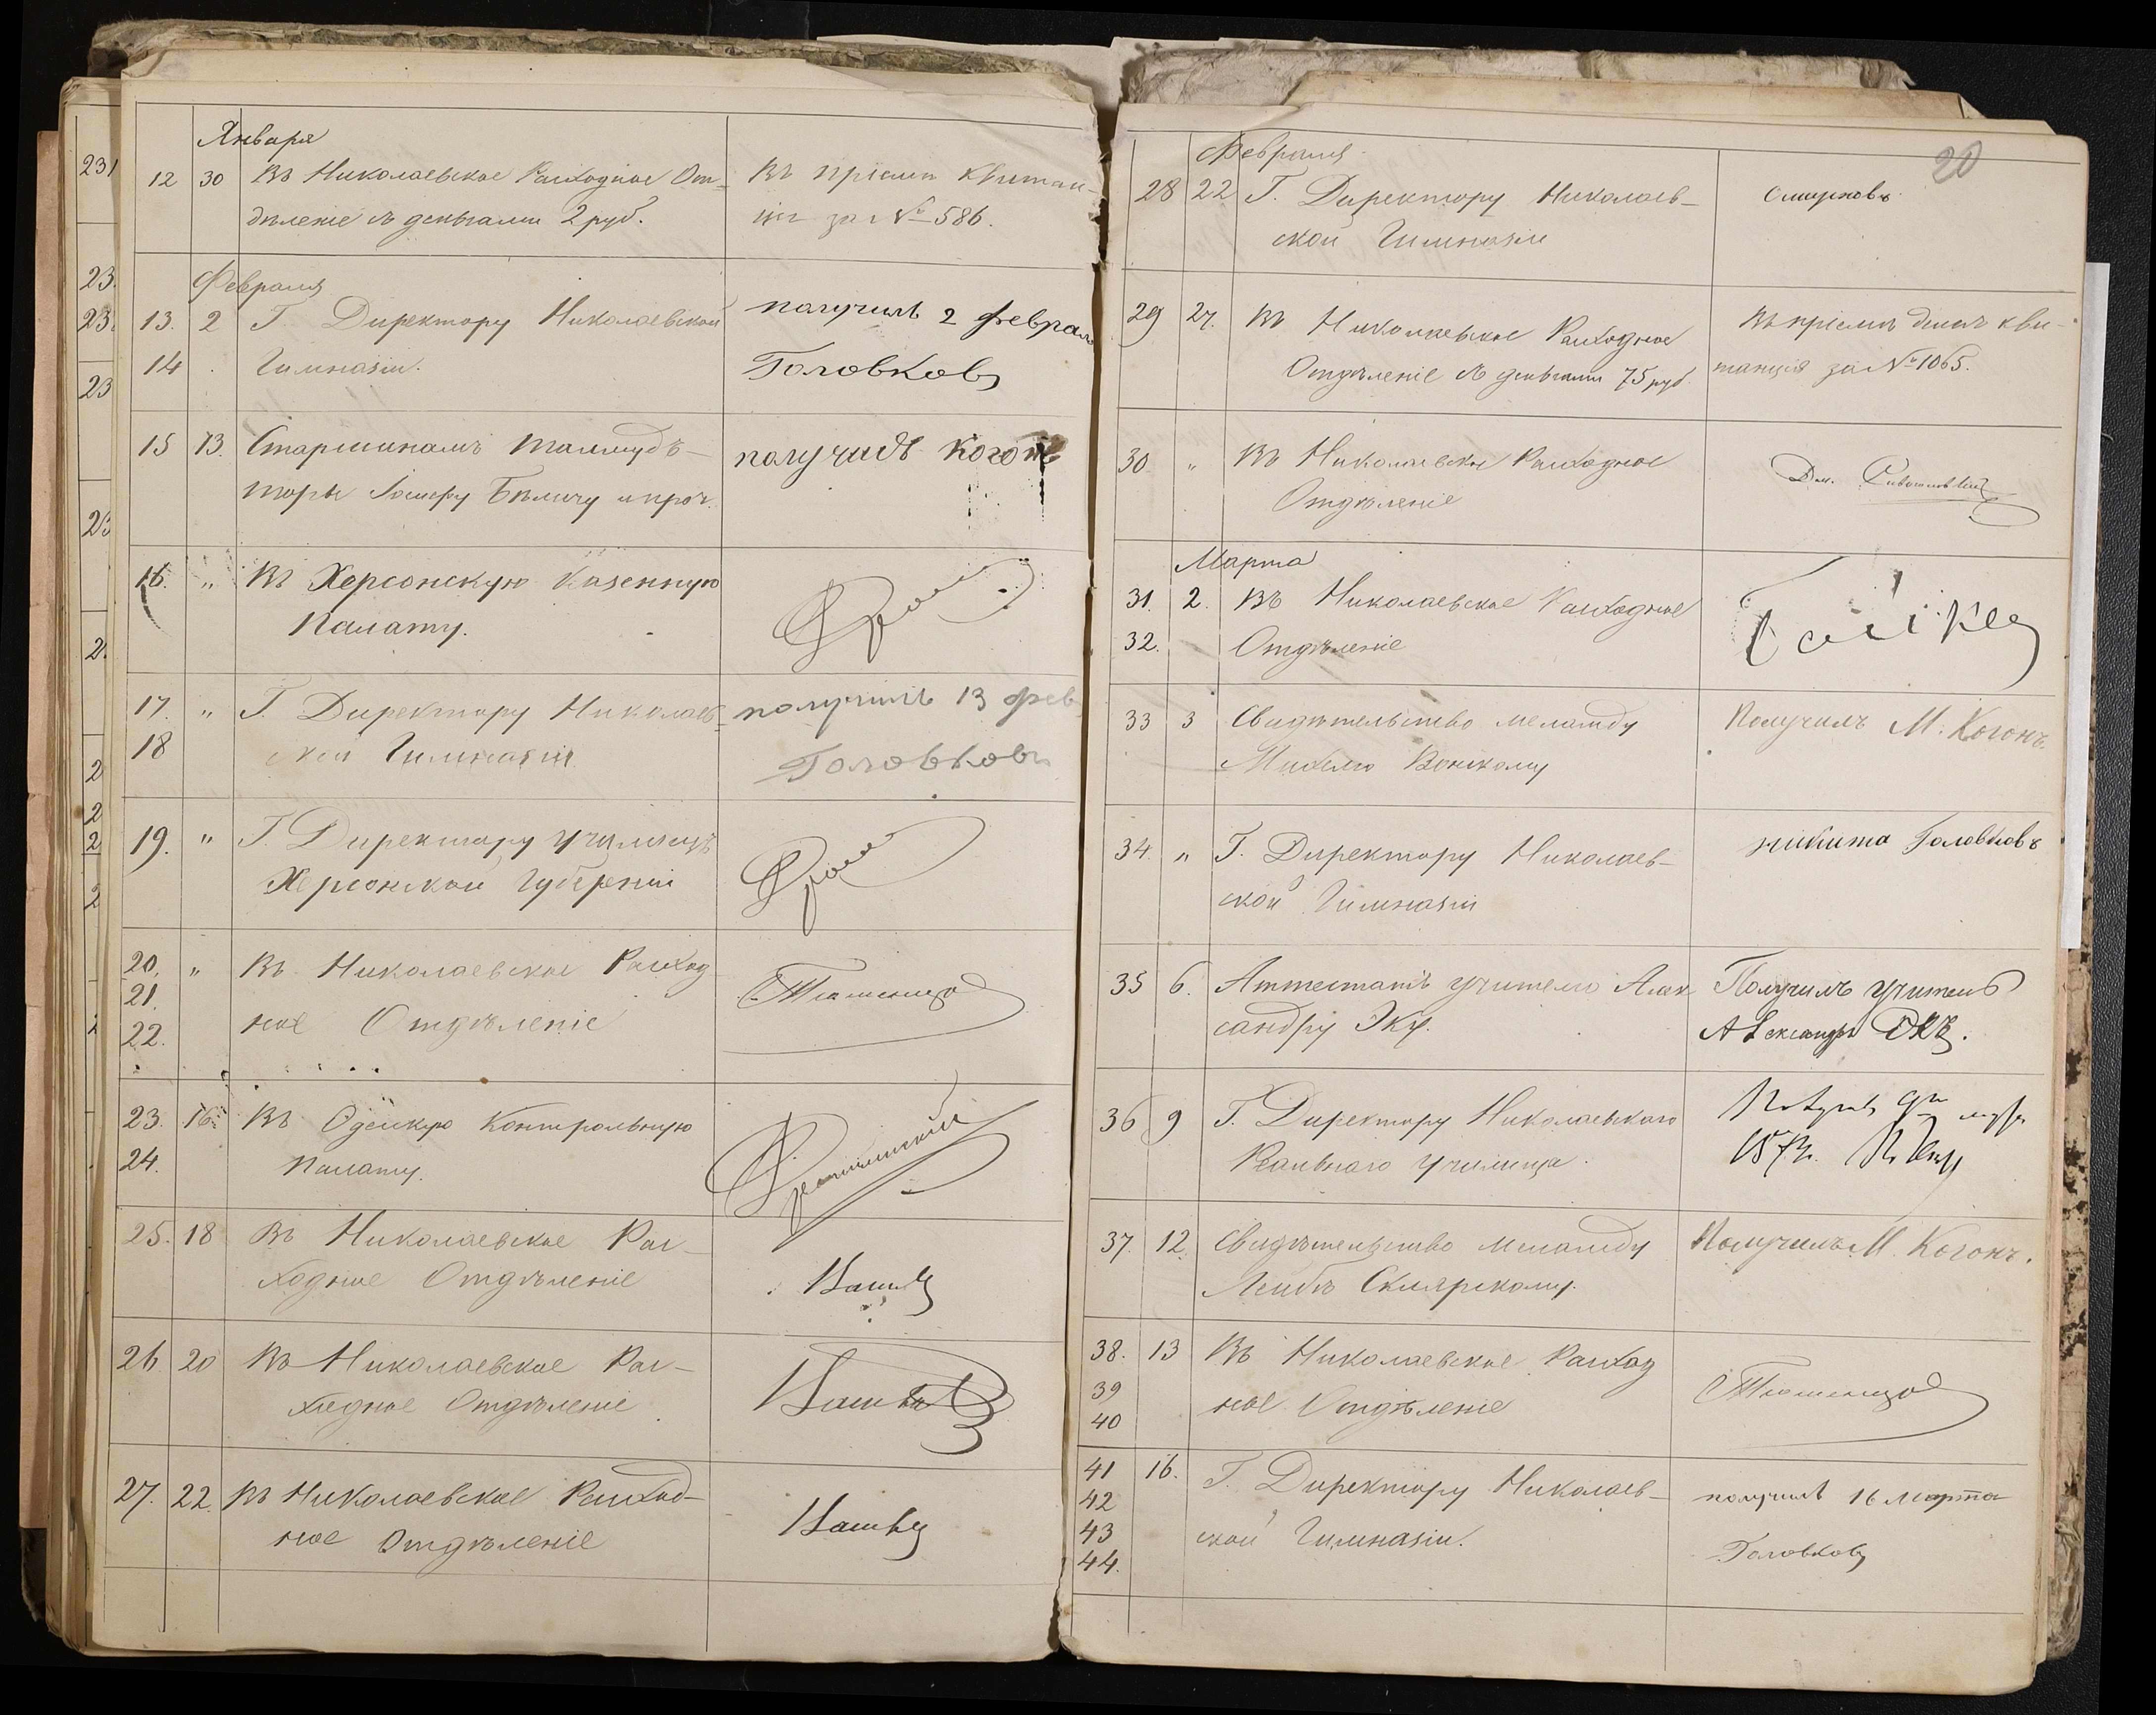 Января
12 30 Въ Николаевское Расходное От-
дѣленіе съ деньгами 2 руб.
Въ пріемѣ квитан-
ція за № 586.
Февраля
13. 2 Г. Директору Николаевской
14 Гимназіи.
получилъ 2 февраля
Головковъ
15 13. Старшинамъ талмудъ-
торы Бѣличу и проч.
получилъ Когонъ
16. „ Въ Херсонскую Казенную
Палату.
17. „ Г. Директору Николаев-
18 ской Гимназіи
получилъ 13 фев
Головковъ
19. „ Г. Директору училищъ
Херсонской Губерніи
20. „ Въ Николаевское Расход
21.
22. ное Отдѣленіе
23. 16 Въ Одесскую Контрольную
24. Палату.
25. 18 Въ Николаевское Рас-
ходное Отдѣленіе
26. 20 Въ Николаевское Рас-
ходное Отдѣленіе
27. 22. Въ Николаевское Расход-
ное Отдѣленіе
20
Февраля
28 22 Г. Директору Николаев-
ской Гимназіи
Смирновъ
29 27. Въ Николаевское Расходное
Отдѣленіе съ деньгами 75 руб.
Въ пріемѣ денегъ кви-
танція за № 1065.
30 „ Въ Николаевское Расходное
Отдѣленіе
Дм.
Марта
31. 2. Въ Николаевское Расходное
32. Отдѣленіе
33 3 Свидѣтельство меламду
Михелю Вонскому
Получилъ М. Когонъ.
34. „ Г. Директору Николаев-
ской Гимназіи
Никита Головковъ
35 6. Аттестатъ учителю Алек
сандру Экк.
Получилъ учитель
Александръ Экк.
36 9 Г. Директору Николаевскаго
Реальнаго училища.
37. 12. Свидѣтельство меламду
Лейбѣ Склярскому.
Получилъ М. Когонъ.
38. 13 Въ Николаевское Расход
39
40 ное Отдѣленіе
41 16. Г. Директору Николаев-
42
43 ской Гимназіи.
44.
получилъ 16 Марта
Головковъ